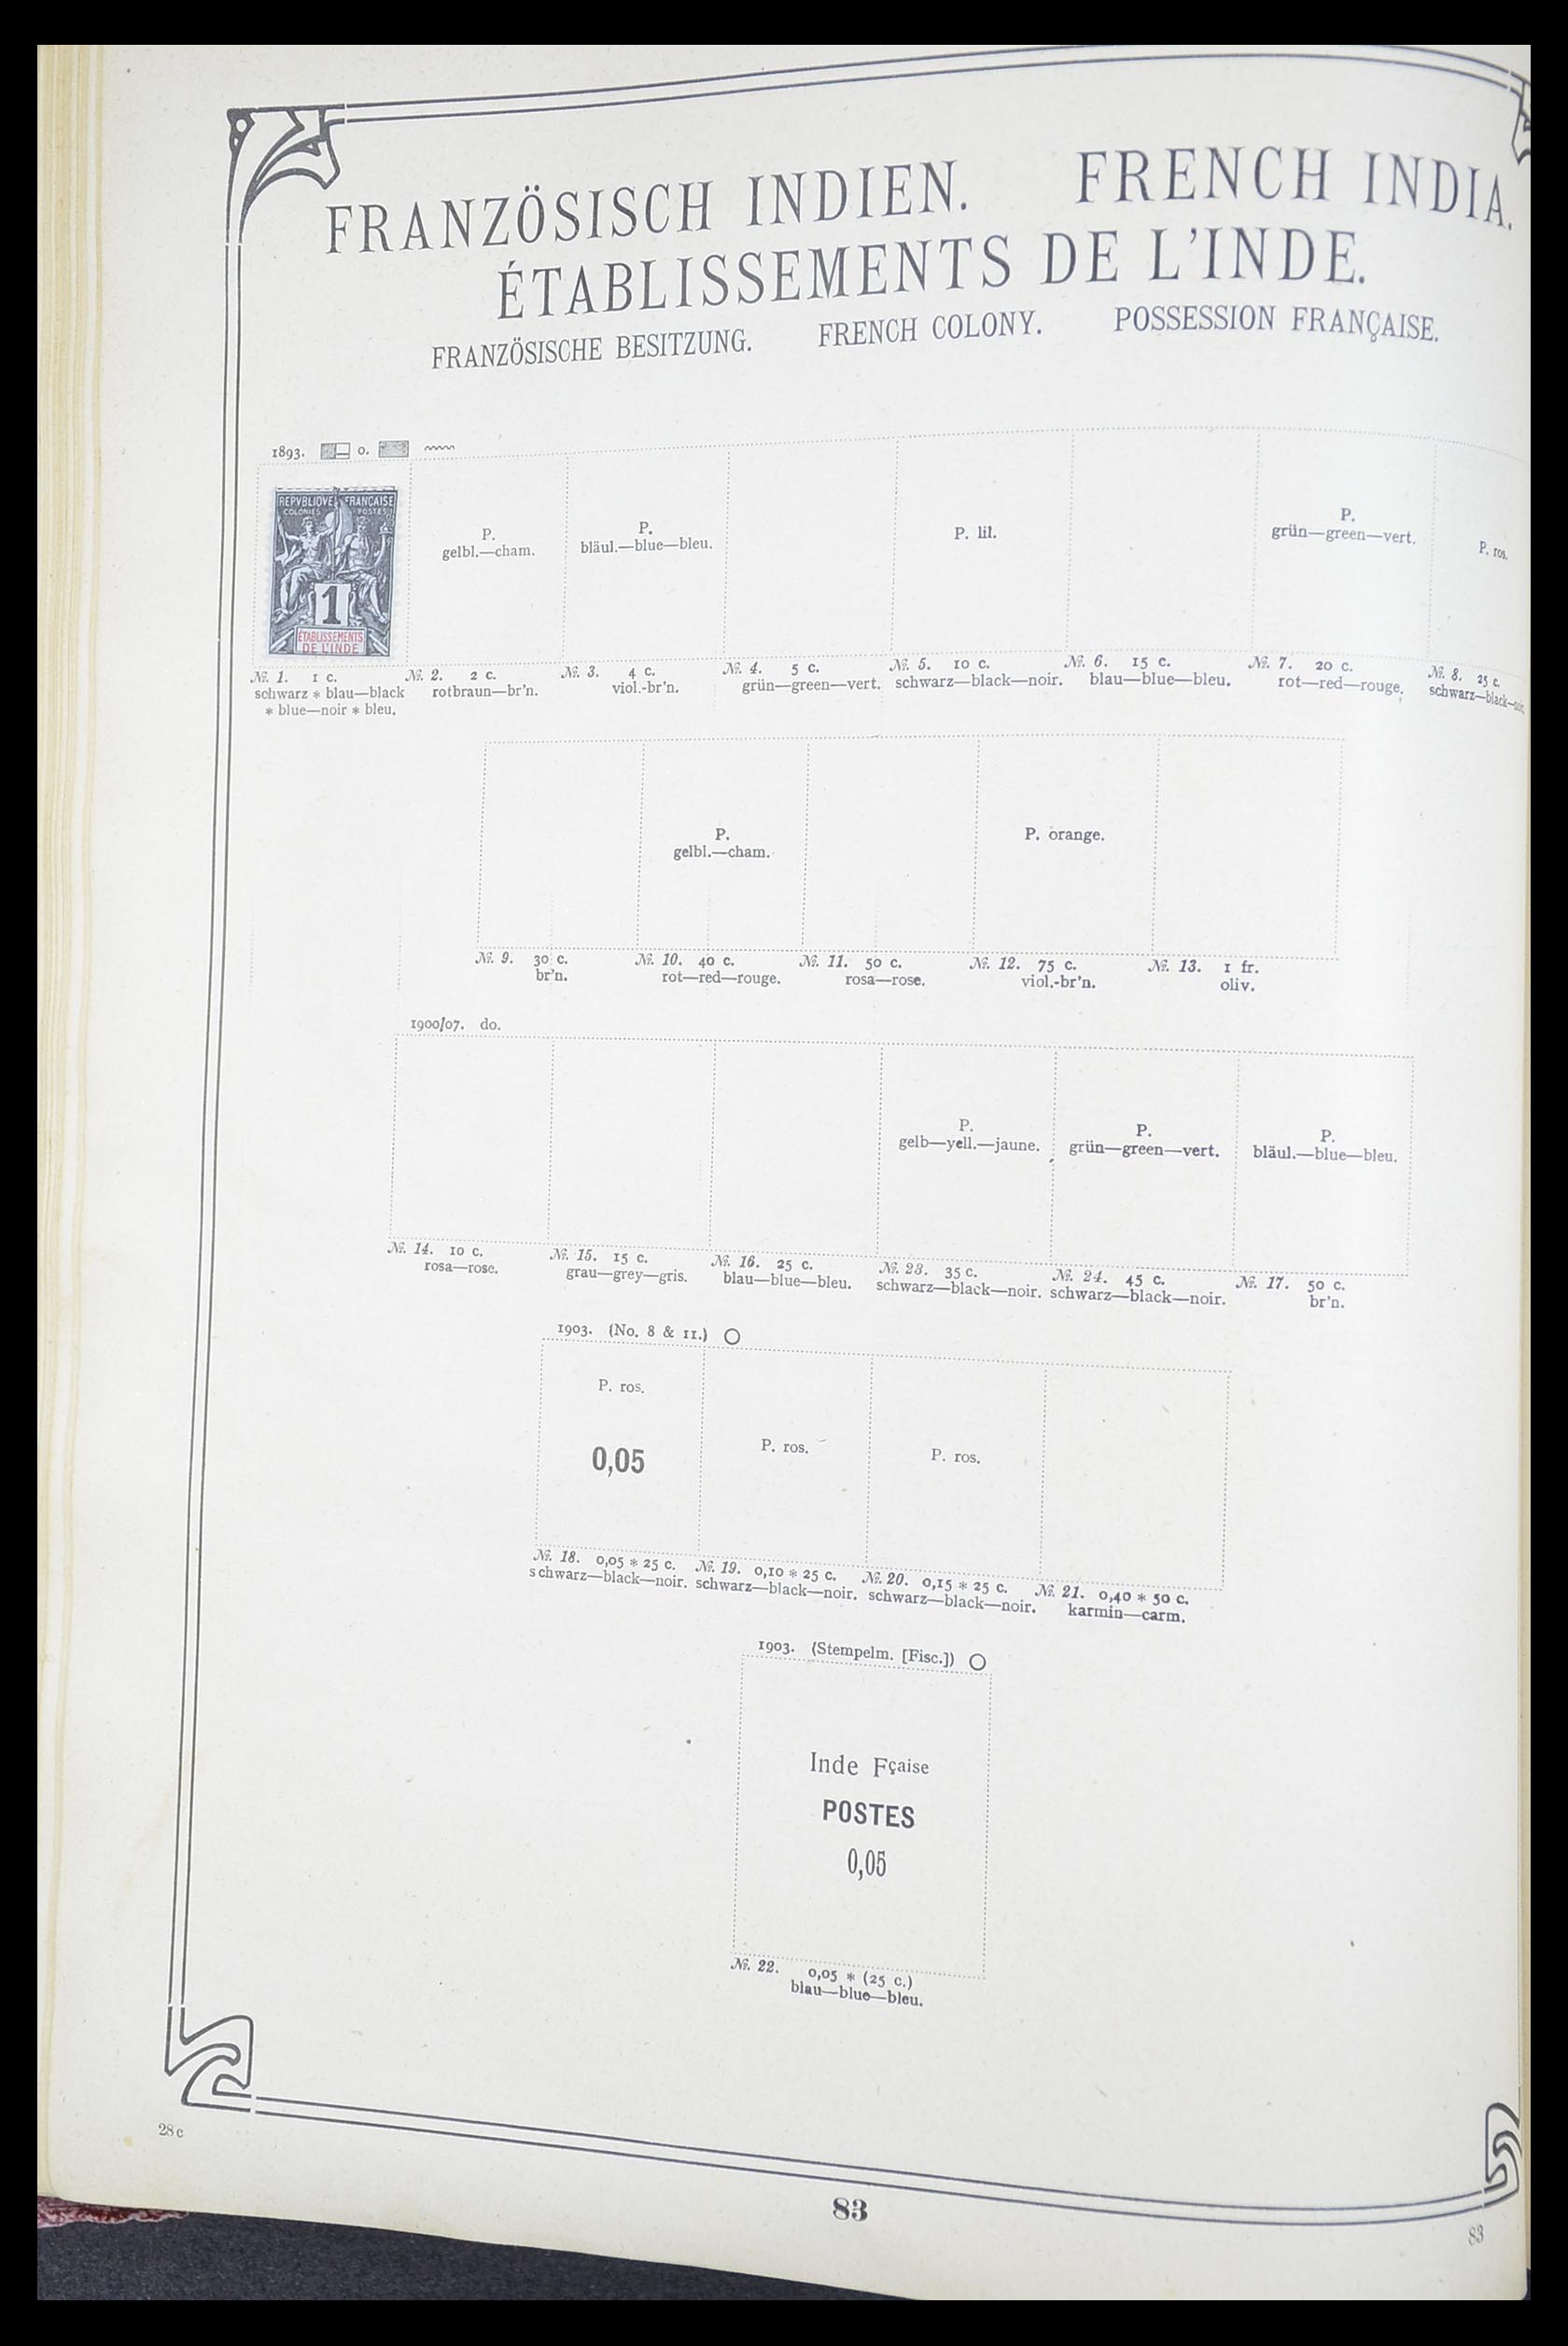 FRANZÖSISCH INDIEN. FRENCH INDIA.
ÉTABLISSEMENTS DE L'INDE.
FRANZÖSISCHE BESITZUNG. FRENCH COLONY. POSSESSION FRANÇAISE.
1893. o.
REPVBLIQVE FRANÇAISE
COLONIES POSTES
1
ÉTABLISSEMENTS
DE L'INDE
P.
gelbl.—cham.
P.
bläul.—blue—bleu.
P. lil.
P.
grün—green—vert.
P. ros.
№. 1. 1 c.
schwarz * blau—black
* blue—noir * bleu.
№. 2. 2 c.
rotbraun—br'n.
№. 3. 4 c.
viol.-br'n.
№. 4. 5 c.
grün—green—vert.
№. 5. 10 c.
schwarz—black—noir.
№. 6. 15 c.
blau—blue—bleu.
№. 7. 20 c.
rot—red—rouge.
№. 8. 25 c.
schwarz—black—noir
P.
gelbl.—cham.
P. orange.
№. 9. 30 c.
br'n.
№. 10. 40 c.
rot—red—rouge.
№. 11. 50 c.
rosa—rose.
№. 12. 75 c.
viol.-br'n.
№. 13. 1 fr.
oliv.
1900/07. do.
P.
gelb—yell.—jaune.
P.
grün—green—vert.
P.
bläul.—blue—bleu.
№. 14. 10 c.
rosa—rose.
№. 15. 15 c.
grau—grey—gris.
№. 16. 25 c.
blau—blue—bleu.
№. 23. 35 c.
schwarz—black—noir.
№. 24. 45 c.
schwarz—black—noir.
№. 17. 50 c.
br'n.
1903. (No. 8 & 11.)
P. ros.
0,05
P. ros.
P. ros.
№. 18. 0,05 * 25 c.
schwarz—black—noir.
№. 19. 0,10 * 25 c.
schwarz—black—noir.
№. 20. 0,15 * 25 c.
schwarz—black—noir.
№. 21. 0,40 * 50 c.
karmin—carm.
1903. (Stempelm. [Fisc.])
Inde Fçaise
POSTES
0,05
№. 22. 0,05 * (25 c.)
blau—blue—bleu.
28 c
83
83